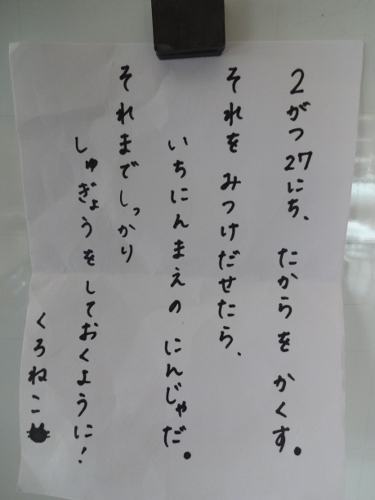 2がつ27にち、たからを かくす。
それを みつけだせたら、
いちにんまえの にんじゃだ。
それまでしっかり
しゅぎょうをしておくように!
くろねこ